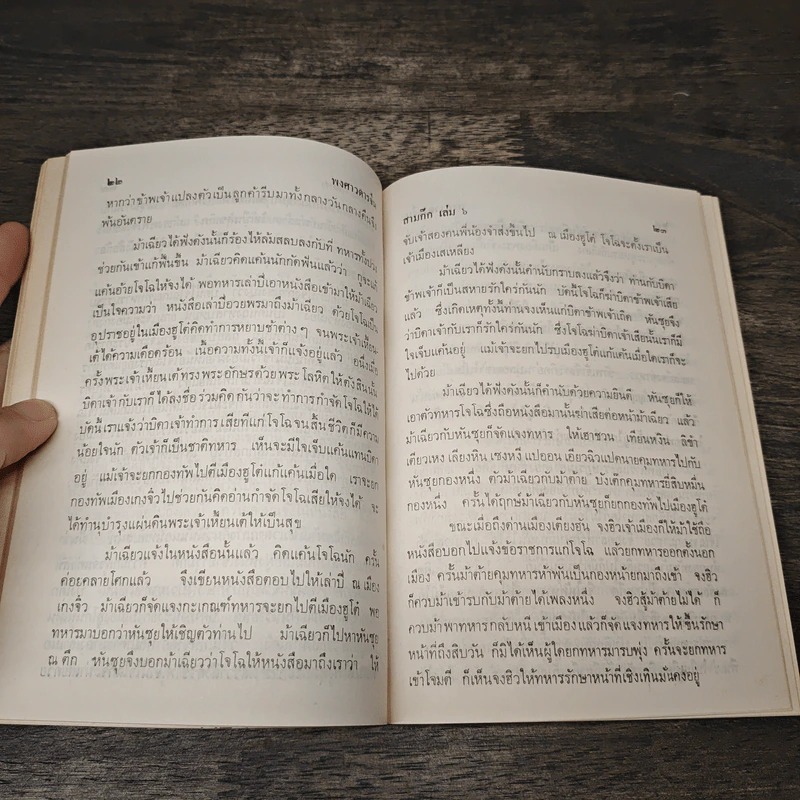 ๒๒
พงศาวดารจีน
หากว่าข้าพเจ้าแปลงตัวเป็นลูกค้ารีบมาทั้งกลางวันกลางคืนจึง
พ้นอันตราย
ม้าเฉียวได้ฟังดังนั้นก็ร้องไห้ล้มสลบลงกับที่ ทหารทั้งปวง
ช่วยกันเข้าแก้ฟื้นขึ้น ม้าเฉียวคิดแค้นนักกัดฟันแล้วว่า กูจะแก้
แค้นอ้ายโจโฉให้จงได้ พอทหารเล่าปี่เอาหนังสือเข้ามาให้ม้าเฉียว
เป็นใจความว่า หนังสือเล่าปี่อวยพรมาถึงม้าเฉียว ด้วยโจโฉเป็น
อุปราชอยู่ในเมืองฮูโต๋คิดทำการหยาบช้าต่าง ๆ จนพระเจ้าเหี้ยน
เต้ได้ความเดือดร้อน เนื้อความทั้งนี้เจ้าก็แจ้งอยู่แล้ว อนึ่งเมื่อ
ครั้งพระเจ้าเหี้ยนเต้ทรงพระอักษรด้วยพระโลหิตให้ตังสินนั้น
บิดาเจ้ากับเราก็ได้ลงชื่อร่วมคิดกันว่าจะทำการกำจัดโจโฉให้ได้
บัดนี้เราแจ้งว่าบิดาเจ้าทำการเสียทีแก่โจโฉจนสิ้นชีวิตก็มีความ
น้อยใจนัก ตัวเจ้าก็เป็นชาติทหาร เห็นจะมีใจเจ็บแค้นแทนบิดา
อยู่ แม้เจ้าจะยกกองทัพไปตีเมืองฮูโต๋แก้แค้นเมื่อใด เราจะยก
กองทัพเมืองเกงจิ๋วไปช่วยกันคิดอ่านกำจัดโจโฉเสียให้จงได้ จะ
ได้ทำนุบำรุงแผ่นดินพระเจ้าเหี้ยนเต้ให้เป็นสุข
ม้าเฉียวแจ้งในหนังสือนั้นแล้ว คิดแค้นโจโฉนัก ครั้น
ค่อยคลายโศกแล้ว จึงเขียนหนังสือตอบไปให้เล่าปี่ ณ เมือง
เกงจิ๋ว ม้าเฉียวก็จัดแจงกะเกณฑ์ทหารจะยกไปตีเมืองฮูโต๋ พอ
ทหารมาบอกว่าหันซุยให้เชิญตัวท่านไป ม้าเฉียวก็ไปหาหันซุย
ณ ตึก หันซุยจึงบอกม้าเฉียวว่าโจโฉให้หนังสือมาถึงเราว่า ให้
สามก๊ก เล่ม ๖
๒๓
จับเจ้าสองคนพี่น้องจำส่งขึ้นไป ณ เมืองฮูโต๋ โจโฉจะตั้งเราเป็น
เจ้าเมืองเสเหลียง
ม้าเฉียวได้ฟังดังนั้นคำนับกราบลงแล้วจึงว่า ท่านกับบิดา
ข้าพเจ้าก็เป็นสหายรักใคร่กันนัก บัดนี้โจโฉก็ฆ่าบิดาข้าพเจ้าเสีย
แล้ว ซึ่งเกิดเหตุทั้งนี้ท่านจงเห็นแก่บิดาข้าพเจ้าเถิด หันซุยจึง
ว่าบิดาเจ้ากับเราก็รักใคร่กันนัก ซึ่งโจโฉฆ่าบิดาเจ้าเสียนั้นเราก็มี
ใจเจ็บแค้นอยู่ แม้เจ้าจะยกไปรบเมืองฮูโต๋แก้แค้นเมื่อใดเราก็จะ
ไปด้วย
ม้าเฉียวได้ฟังดังนั้นก็คำนับด้วยความยินดี หันซุยก็ให้
เอาตัวทหารโจโฉซึ่งถือหนังสือมานั้นฆ่าเสียต่อหน้าม้าเฉียว แล้ว
ม้าเฉียวกับหันซุยก็จัดแจงทหาร ให้เฮาชวน เทียหงิน ลิขำ
เตียวเหง เลียงหิน เซงหงี แปออน เอียวฉิวแปดนายคุมทหารไปกับ
หันซุยกองหนึ่ง ตัวม้าเฉียวกับม้าต้าย บังเต๊กคุมทหารยี่สิบหมื่น
กองหนึ่ง ครั้นได้ฤกษ์ม้าเฉียวกับหันซุยก็ยกกองทัพไปเมืองฮูโต๋
ขณะเมื่อถึงด่านเมืองเตียงฮัน จงฮิวเจ้าเมืองก็ให้ม้าใช้ถือ
หนังสือบอกไปแจ้งข้อราชการแก่โจโฉ แล้วยกทหารออกตั้งนอก
เมือง ครั้นม้าต้ายคุมทหารห้าพันเป็นกองหน้ายกมาถึงเข้า จงฮิว
ก็ควบม้าเข้ารบกับม้าต้ายได้เพลงหนึ่ง จงฮิวสู้ม้าต้ายไม่ได้ ก็
ควบม้าพาทหารกลับหนีเข้าเมือง แล้วก็จัดแจงทหารให้ขึ้นรักษา
หน้าที่ถึงสิบวัน ก็มิได้เห็นผู้ใดยกทหารมารบพุ่ง ครั้นจะยกทหาร
เข้าโจมตี ก็เห็นจงฮิวให้ทหารรักษาหน้าที่เชิงเทินมั่นคงอยู่